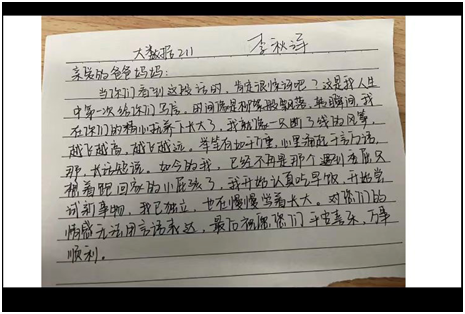 大数据211 李秋连
亲爱的爸爸妈妈:
当你们看到这段话时,肯定很惊讶吧?这是我人生
中第一次给你们写信,时间像是利箭般飞落,转瞬间,我
在你们的精心抚养下长大了,我就像一只断了线的风筝,
越飞越高,越飞越远。学里有如千重,心里有千言万语,
那,长话短说。如今的我,已经不再是那个遇到委屈只
想着跑回家的小屁孩了,我开始认真吃早饭,开始尝
试新事物,我已独立,也在慢慢学着长大。对你们的
情感无法用言语表达,最后祝愿你们平安喜乐,万事
顺利。